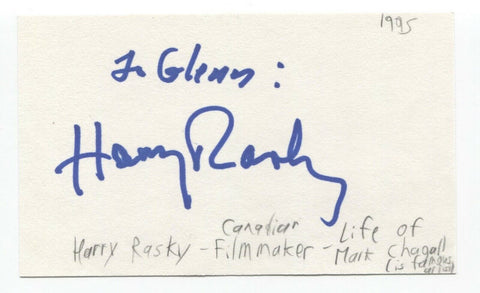 1995
To Glenn:
Harry Rasky
Harry Rasky - Canadian Filmmaker - Life of Mark Chagall
(is famous artist)